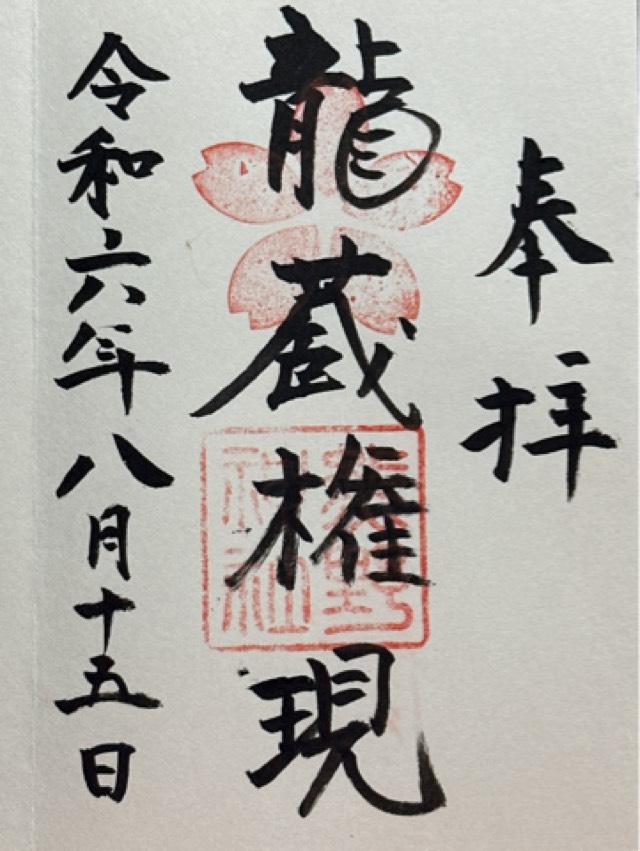 奉拝
龍蔵権現
令和六年八月十五日